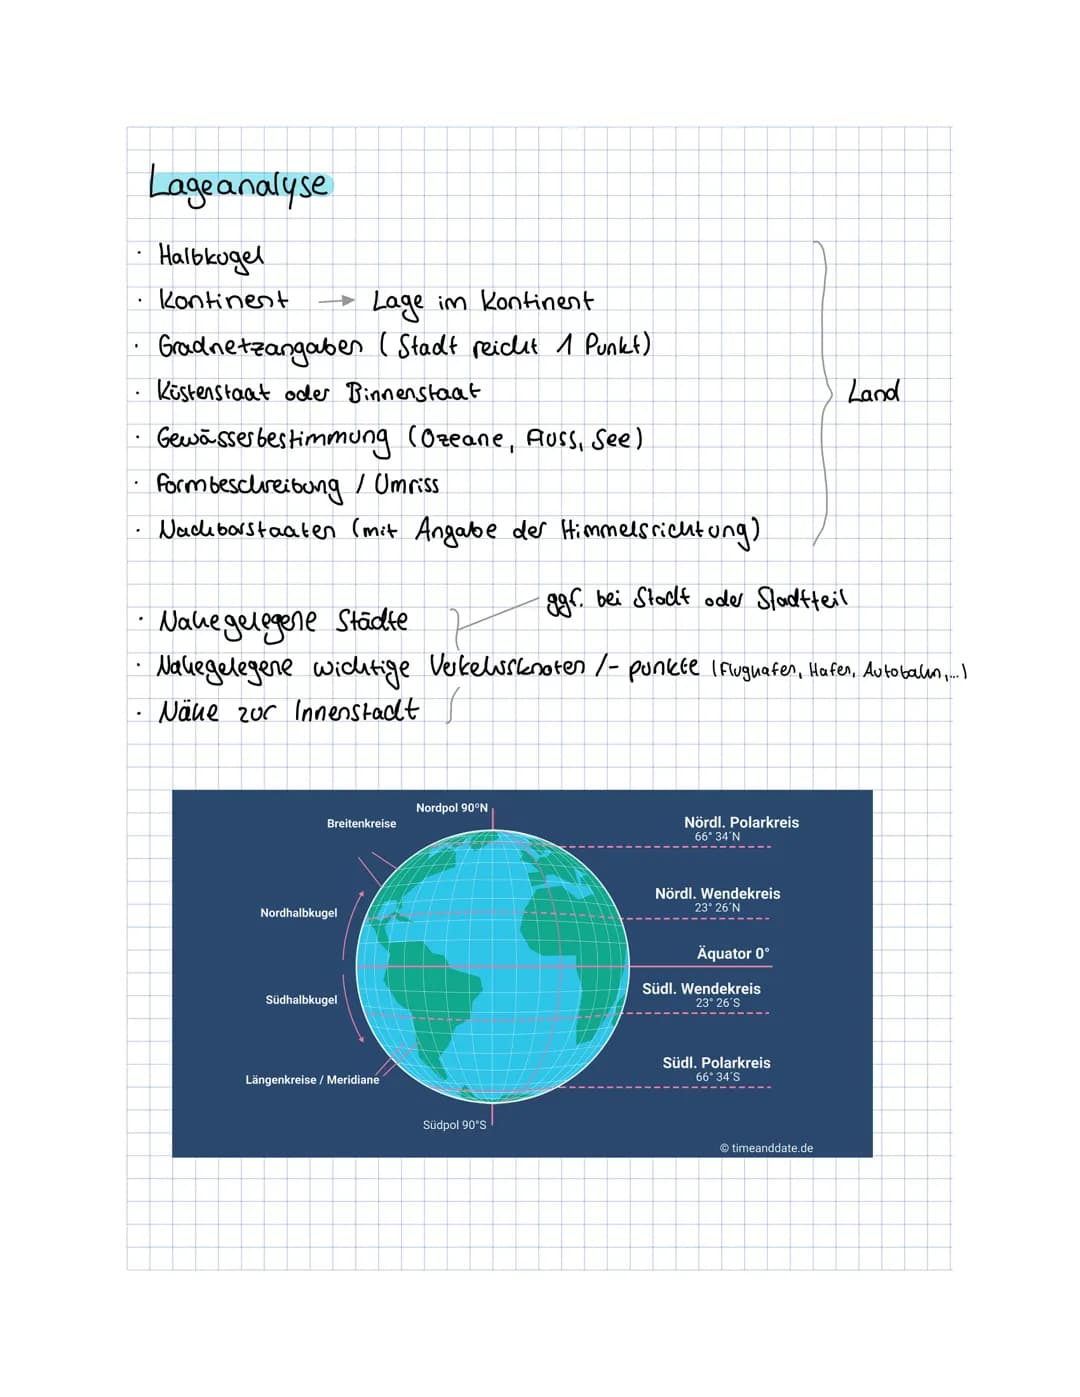 Lageanalyse
· Halbkugel
· Kontinent → Lage im Kontinent
· Gradnetzangaben (Stadt reicht 1 Punkt)
· Küstenstaat oder Binnenstaat
Land
· Gewässerbestimmung (Ozeane, Fluss, See)
· Formbeschreibung / Umriss
· Nachbarstaaten (mit Angabe der Himmelsrichtung)
ggf. bei Stadt oder Stadtteil
· Nahegelegene Städte
· Nahegelegene wichtige Verkehrsknoten /- punkte (Flughafen, Hafen, Autobahn,...)
· Nähe zur Innenstadt
Nordpol 90°N
Breitenkreise
Nördl. Polarkreis
66° 34´N
Nördl. Wendekreis
23° 26´N
Nordhalbkugel
Äquator 0°
Südl. Wendekreis
23° 26´S
Südhalbkugel
Südl. Polarkreis
66° 34´S
Längenkreise / Meridiane
Südpol 90°S
© timeanddate.de